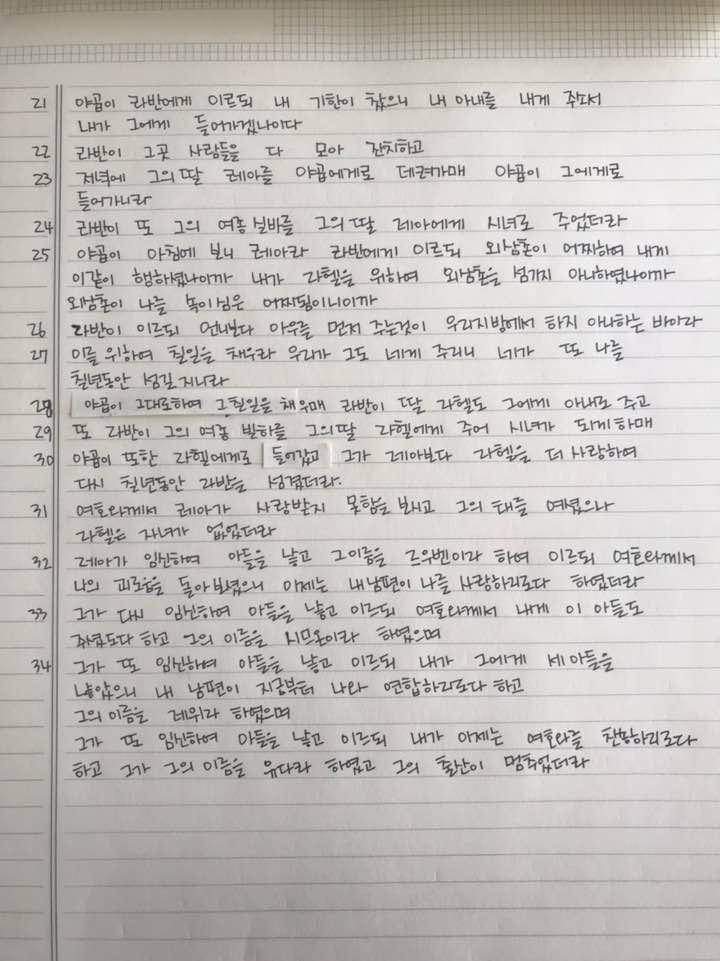 21 야곱이 라반에게 이르되 내 기한이 찼으니 내 아내를 내게 주소서
내가 그에게 들어가겠나이다
22 라반이 그곳 사람들을 다 모아 잔치하고
23 저녁에 그의 딸 레아를 야곱에게로 데려가매 야곱이 그에게로
들어가니라
24 라반이 또 그의 여종 실바를 그의 딸 레아에게 시녀로 주었더라
25 야곱이 아침에 보니 레아라 라반에게 이르되 외삼촌이 어찌하여 내게
이같이 행하셨나이까 내가 라헬을 위하여 외삼촌을 섬기지 아니하였나이까
외삼촌이 나를 속이심은 어찌됨이니이까
26 라반이 이르되 언니보다 아우를 먼저 주는것이 우리지방에서 하지 아니하는 바이라
27 이를 위하여 칠일을 채우라 우리가 그도 네게 주리니 네가 또 나를
칠년동안 섬길지니라
28 야곱이 그대로하여 그칠일을 채우매 라반이 딸 라헬도 그에게 아내로 주고
29 또 라반이 그의 여종 빌하를 그의딸 라헬에게 주어 시녀가 되게 하매
30 야곱이 또한 라헬에게로 들어갔고 그가 레아보다 라헬을 더 사랑하여
다시 칠년동안 라반을 섬겼더라.
31 여호와께서 레아가 사랑받지 못함을 보시고 그의 태를 여셨으나
라헬은 자녀가 없었더라
32 레아가 임신하여 아들을 낳고 그이름을 르우벤이라 하여 이르되 여호와께서
나의 괴로움을 돌아보셨으니 이제는 내남편이 나를 사랑하리로다 하였더라
33 그가 다시 임신하여 아들을 낳고 이르되 여호와께서 내게 이 아들도
주셨도다 하고 그의 이름을 시므온이라 하였으며
34 그가 또 임신하여 아들을 낳고 이르되 내가 그에게 세 아들을
낳았으니 내 남편이 지금부터 나와 연합하리로다 하고
그의 이름을 레위라 하였으며
그가 또 임신하여 아들을 낳고 이르되 내가 이제는 여호와를 찬송하리로다
하고 그가 그의 이름을 유다라 하였고 그의 출산이 멈추었더라